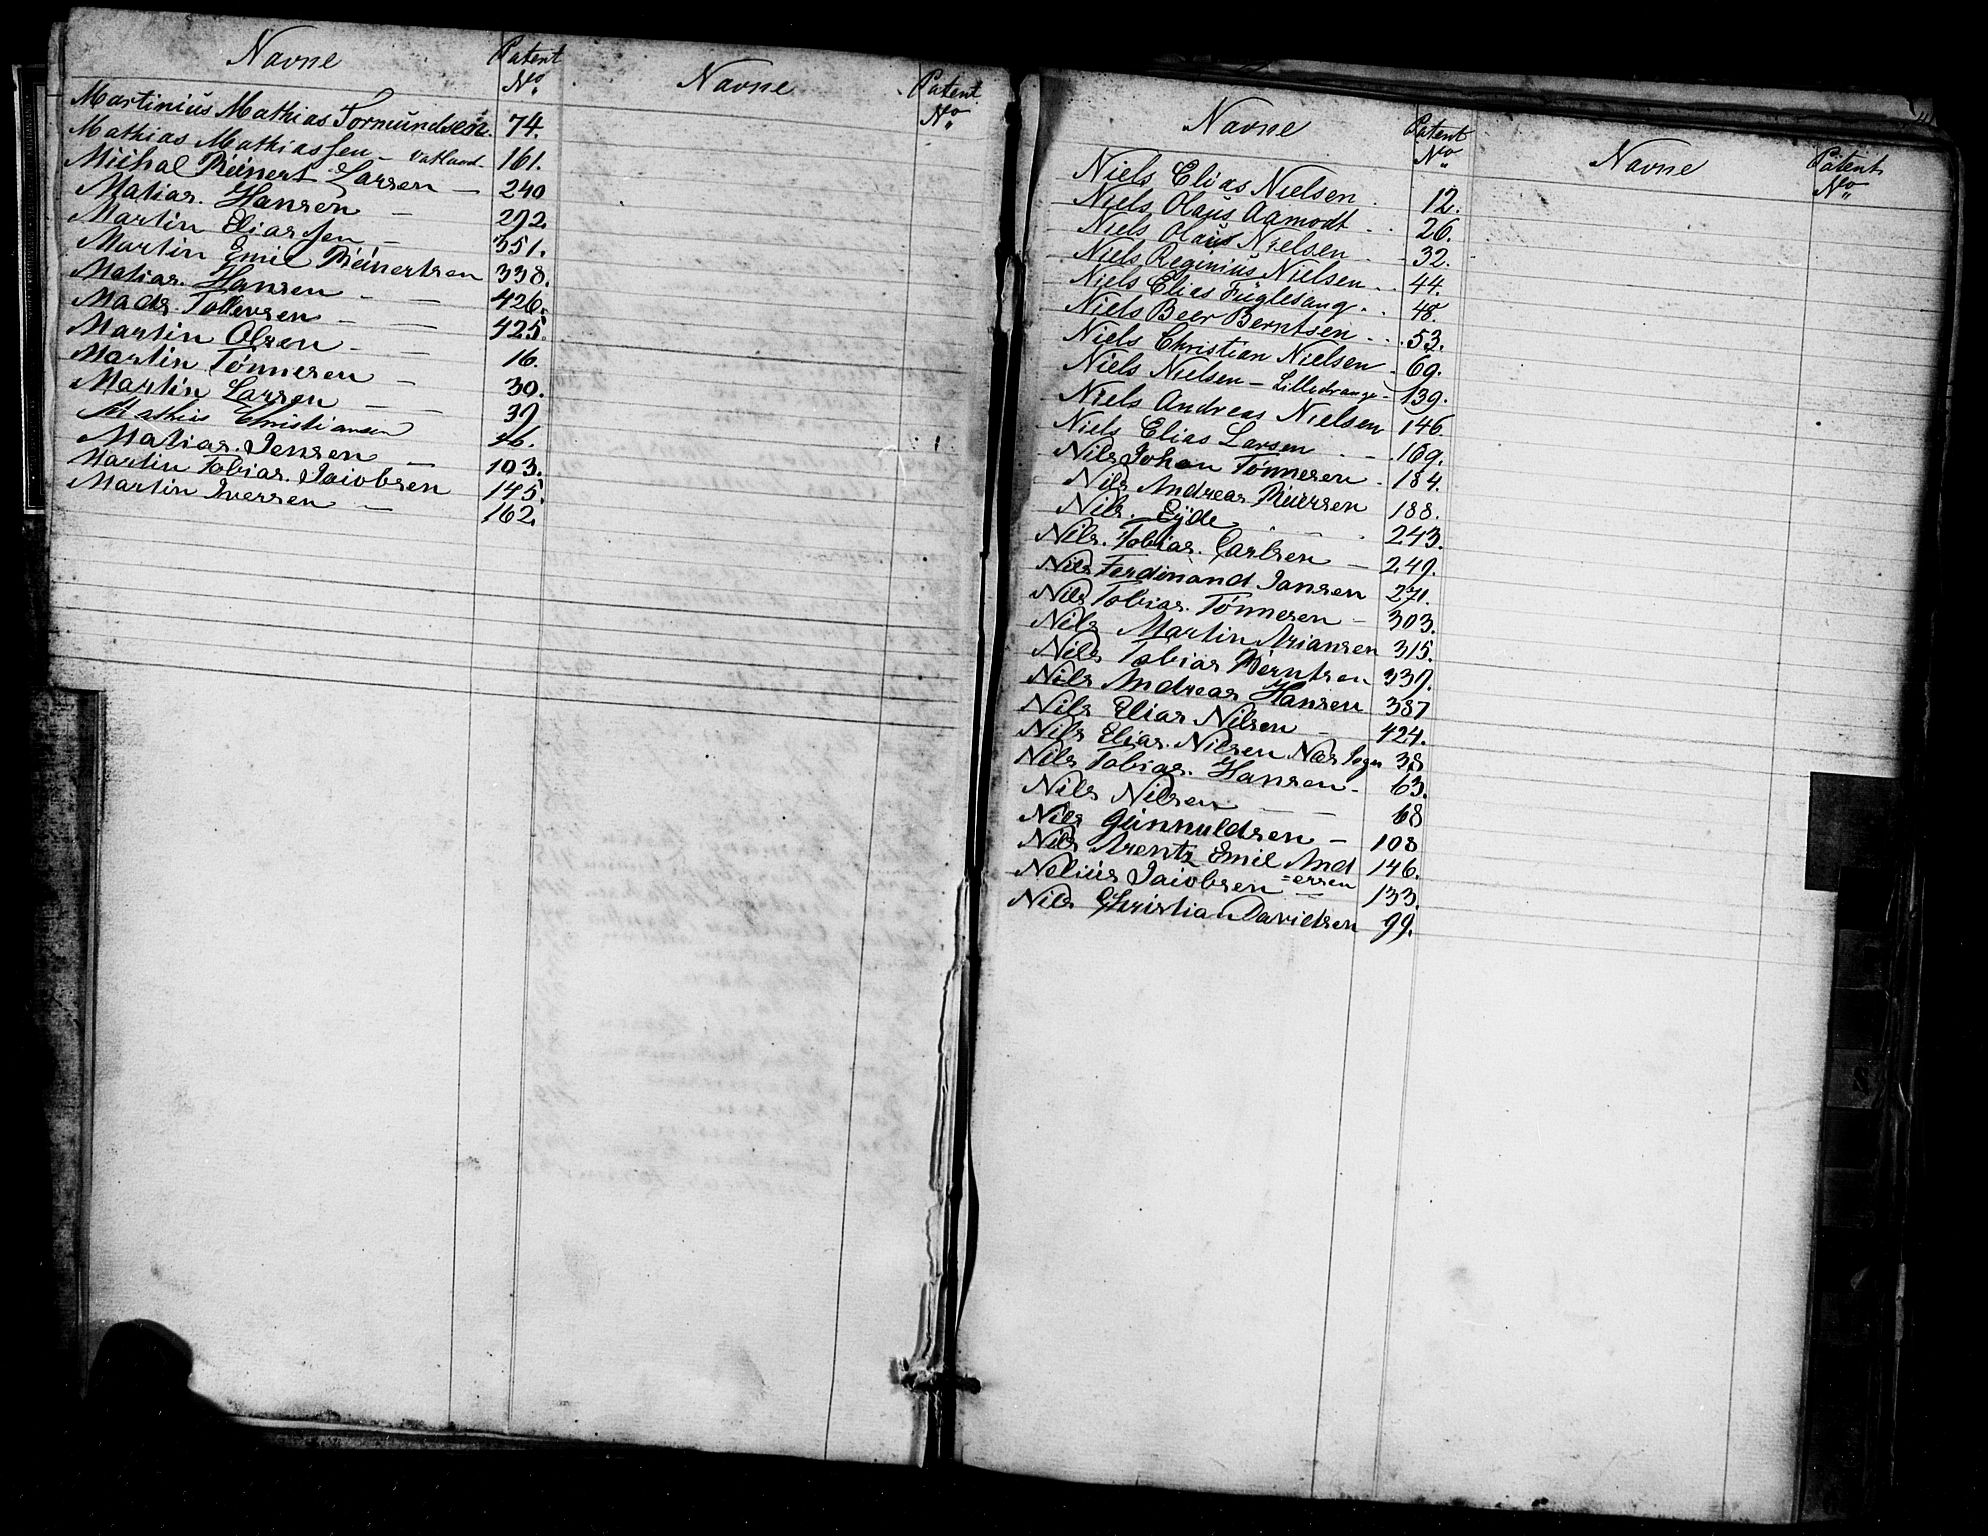 Navne Patent No.
Martinius Mathias Tormundsen. 74.
Mathias Mathiassen - Vatland - 161.
Michal Reinert Larsen - 240
Matias. Hansen - 292.
Martin Eliassen - 351.
Martin Emil Reinertsen 338.
Matias. Hansen - - 426.
Mads. Tollevsen - - 425.
Martin Olsen - - 16.
Martin Tønnesen - 30.
Martin Larsen - - 39
Mathis Christiansen 46.
Matias. Jensen - 103.
Martin Tobias. Jacobsen 145.
Martin Iversen - 162.
Navne Patent No.
Navne Patent No.
Niels Elias Nielsen. 12.
Niels Olaus Aamodt. 26.
Niels Olaus Nielsen. 32.
Niels Reginius Nielsen. 44.
Niels Elias Fuglesang. 48.
Niels Beer Berntsen. 53.
Niels Christian Nielsen. 69.
Niels Nielsen - Lilledrange - 139.
Niels Andreas Nielsen 146.
Niels Elias Larsen - - 169.
Nils Johan Tønnesen. 184.
Nils Andreas Reiersen 188.
Nils. Eÿde. 243.
Nils. Tobias. Carlsen - 249.
Nils Ferdinand Jansen 271.
Nils Tobias. Tønnesen - 303.
Nils Martin Ariansen 315.
Nils Tobias Berntsen 339.
Nils Andreas Hansen 387
Nils Elias. Nilsen - 424.
Nils Elias. Nilsen Næs Sogn 38
Nils Tobias. Hansen - 63.
Nils Nilsen - - 68
Nils Gunnuldsen - 108
Nils Arentz Emil And 146.
=ersen
Nelius Jacobsen - 133.
Nils Christian Davidsen 99.
Navne Patent No.